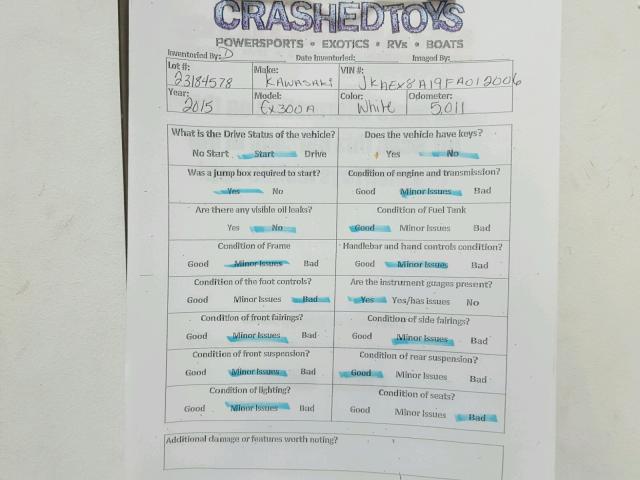 CRASHEDTOYS
POWERSPORTS • EXOTICS • RVs • BOATS
Inventoried By: D Date Inventoried: Imaged By:
Lot #: Make: VIN #:
23184578 KAWASAKI JKAEX8A19FA012006
Year: Model: Color: Odometer:
2015 EX300A White 5,011
What is the Drive Status of the vehicle? Does the vehicle have keys?
No Start Start Drive Yes No
Was a jump box required to start? Condition of engine and transmission?
Yes No Good Minor Issues Bad
Are there any visible oil leaks? Condition of Fuel Tank
Yes No Good Minor Issues Bad
Condition of Frame Handlebar and hand controls condition?
Good Minor Issues Bad Good Minor Issues Bad
Condition of the foot controls? Are the instrument guages present?
Good Minor Issues Bad Yes Yes/has issues No
Condition of front fairings? Condition of side fairings?
Good Minor Issues Bad Good Minor Issues Bad
Condition of front suspension? Condition of rear suspension?
Good Minor Issues Bad Good Minor Issues Bad
Condition of lighting? Condition of seats?
Good Minor Issues Bad Good Minor Issues Bad
Additional damage or features worth noting?